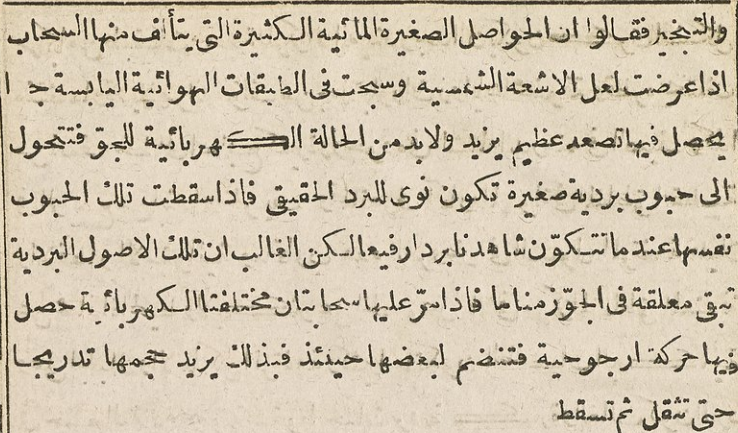 والتبخير فقالوا ان الحواصل الصغيرة المائية الكثيرة التى يتألف منها السحاب
اذا عرضت لعل الاشعة الشمسية وسبحت فى الطبقات الهوائية اليابسة جدا
يحصل فيها تصعد عظيم يزيد ولابد من الحالة الكهربائية للجو فتتحول
الى حبوب بردية صغيرة تكون نوى للبرد الحقيقى فاذا سقطت تلك الحبوب
نفسها عند ما تتكوّن شاهدنا بردا رفيعا لكن الغالب ان تلك الاصول البردية
تبقى معلقة فى الجوّ زمنا ما فاذا مرّ عليها سحابتان مختلفتا الكهربائية حصل
فيها حركة ارجوحية فتنضم لبعضها حينئذ فبذلك يزيد حجمها تدريجا
حتى تثقل ثم تسقط